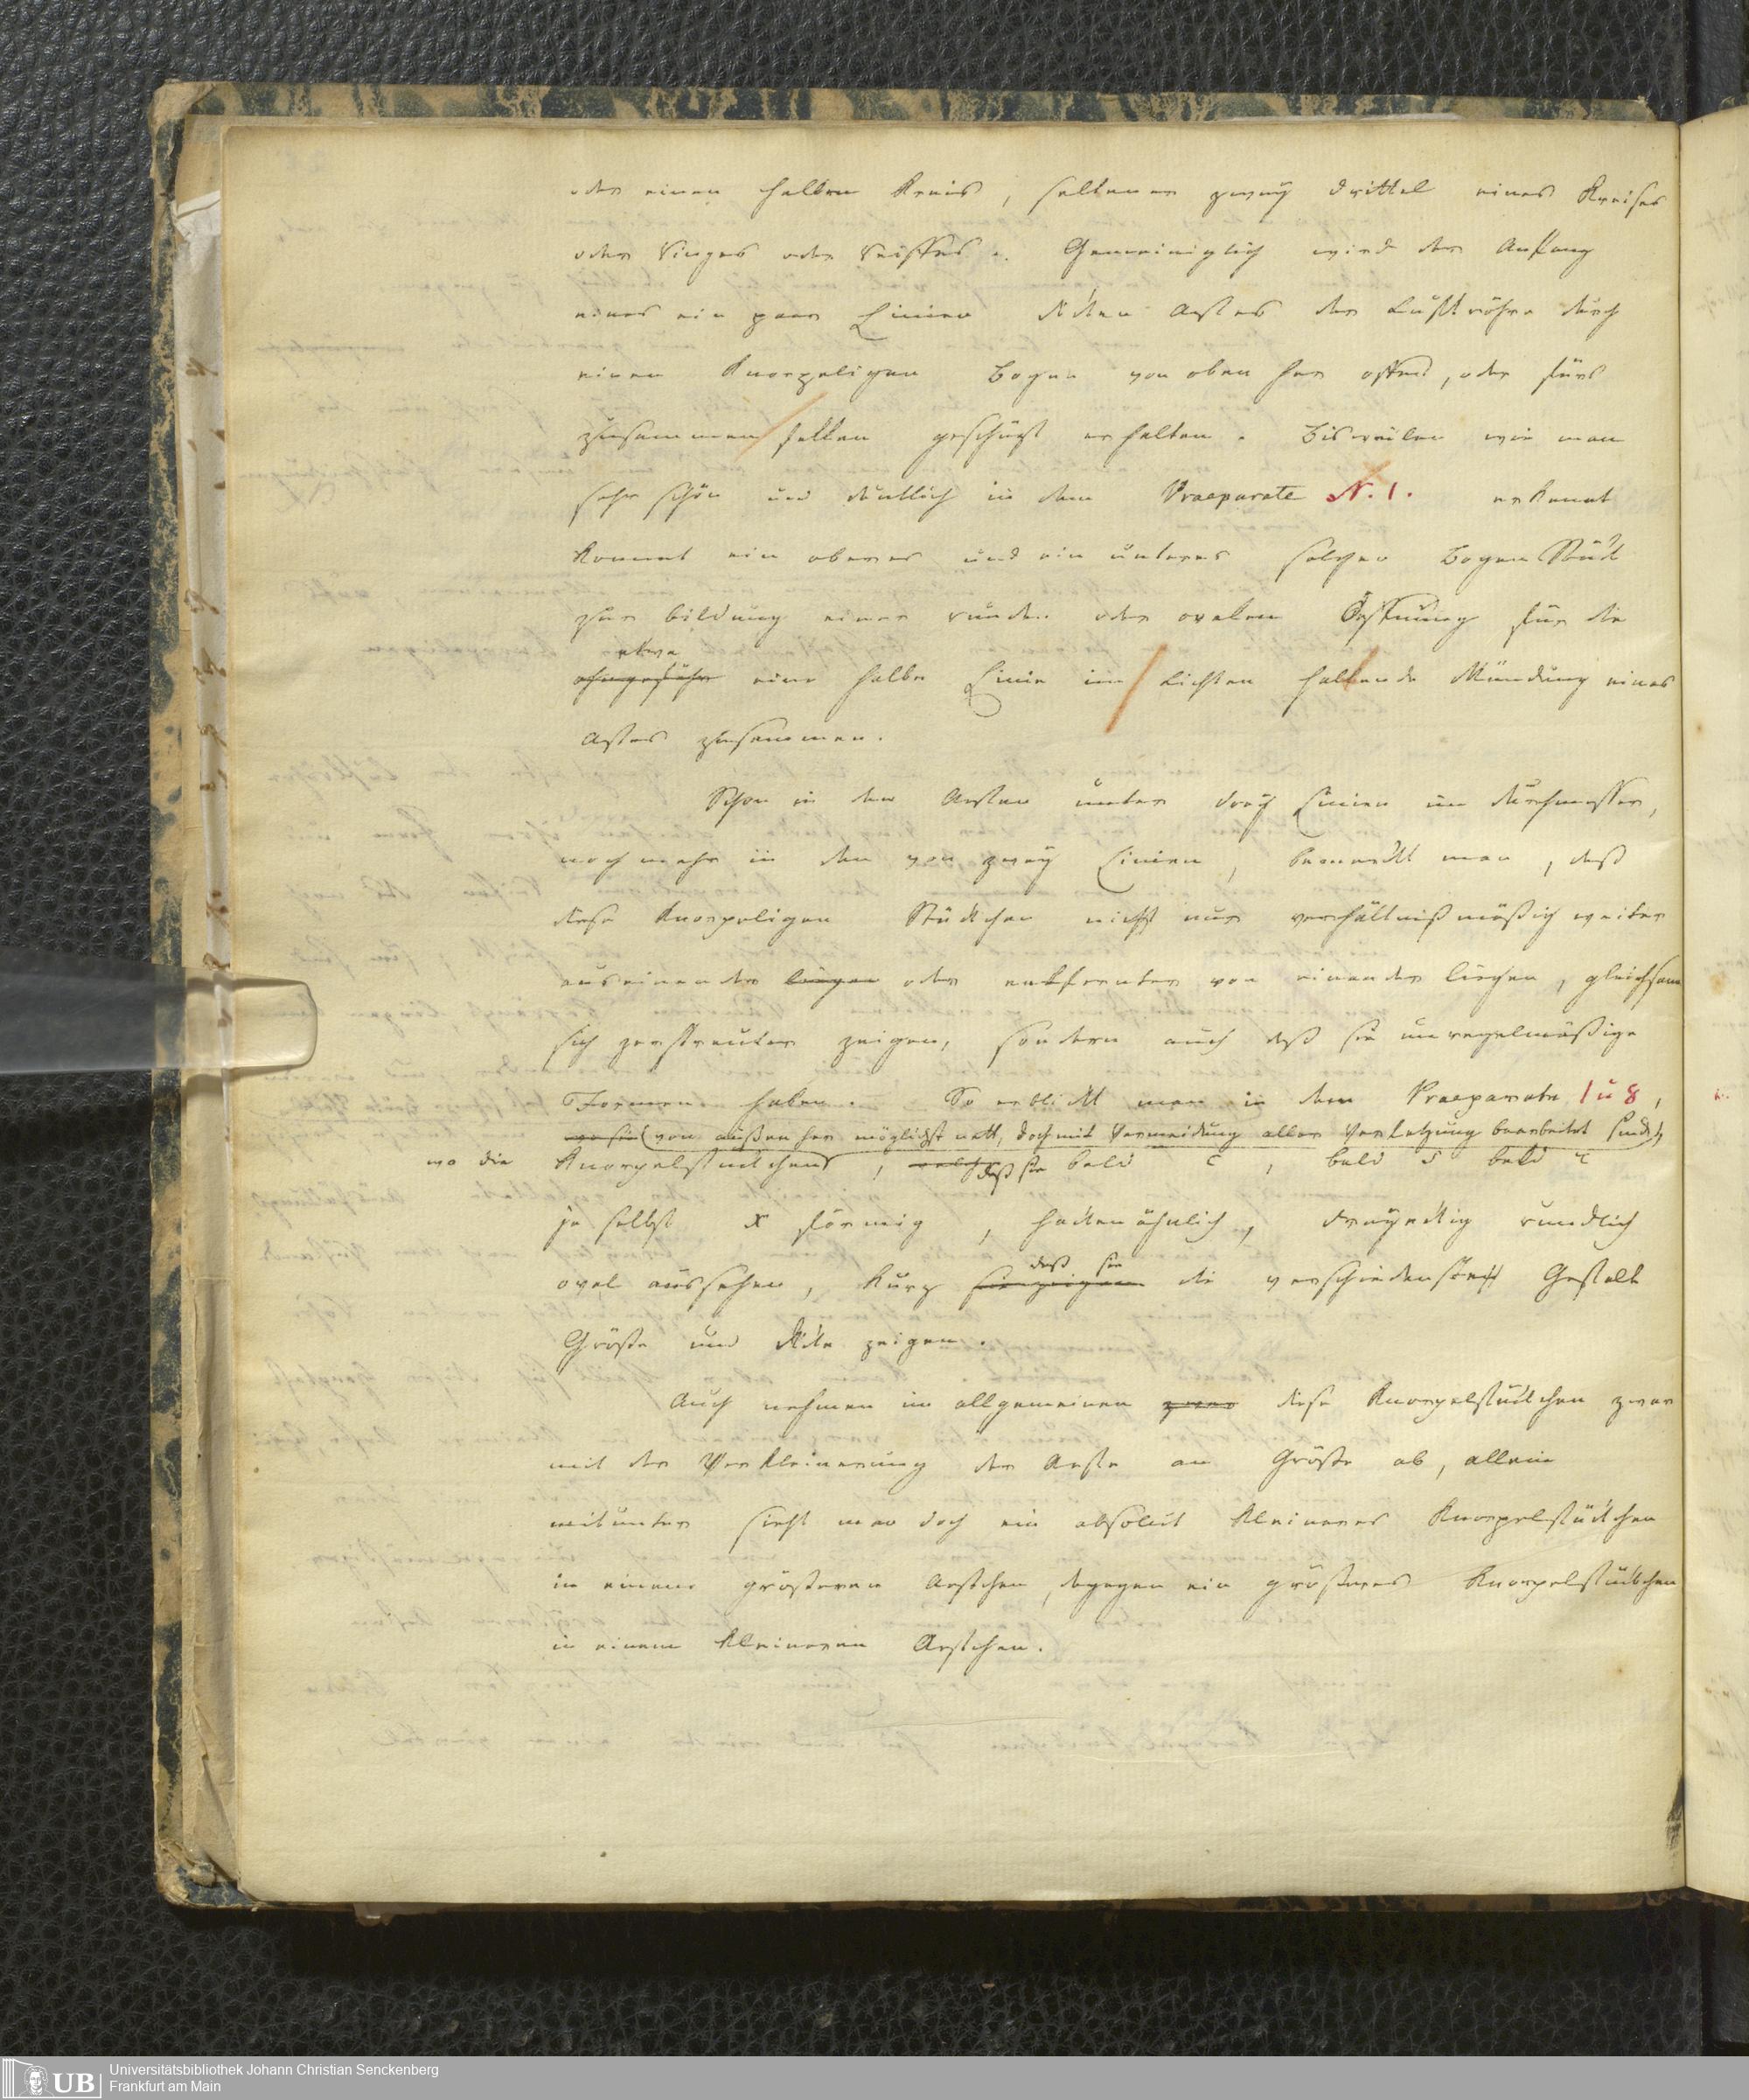 oder einen halben Kreis, seltener zwey drittel eines Kreises
oder Ringes oder Reiffes. Gemeiniglich wird der Anfang
eines ein paar Linien dicken Astes der Luftröhre durch
einen Knorpeligen Bogen von oben her offen, oder fürs
zusammenfallen geschützt erhalten. Bisweilen wie man
sehr schön und deutlich in dem Praeparate N. 1. erkennt
kommt ein oberes und ein unteres solcher Bogen Stück
zur bildung einer runden oder ovalen Öffnung für die
etwa
ohngefähr eine halbe Linie im Lichten haltende Mündung eines
Astes zusammen.
Schon in den Aesten unter drey Linien im durchmesser,
noch mehr in den von zwey Linien, bemerkt man, daß
diese Knorpeligen Stückchen nicht nur verhältnißmäßig weiter
auseinander liegen oder entfernter von einander liegen, gleichsam
sich zerstreuter zeigen, sondern auch daß sie unregelmäßige
Formen haben. So erblickt man in dem Praeparate 1 u 8,
wo sie (von außen her möglichst nett, doch mit Vermeidung aller Verletzung bearbeitet sind),
wo die Knorpelstückchen, welche daß sie bald c, bald s bald r
ja selbst x förmig, hackenähnlich, dreyeckig rundlich
daß sie
oval aussehen, kurz sie zeigen die verschiedenste Gestalt
Größe und Dicke zeigen.
Auch nehmen im allgemeinen zwar diese Knorpelstückchen zwar
mit der Verkleinerung der Aeste an Größe ab, allein
mitunter sieht man doch ein absolut kleineres Knorpelstückchen
in einem größeren Aestchen, dagegen ein größeres Knorpelstückchen
in einem kleineren Aestchen.
UB
Universitätsbibliothek Johann Christian Senckenberg
Frankfurt am Main